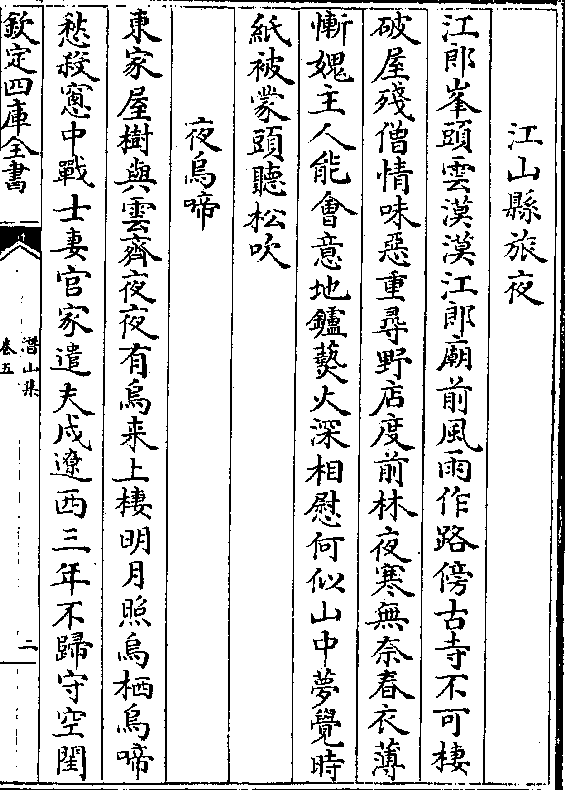 江山縣旅夜
江郎峯頭雲漠漠江郎廟前風雨作路傍古寺不可棲
破屋殘僧情味惡重尋野店度前林夜寒無奈春衣薄
慚媿主人能會意地鑪爇火深相慰何似山中夢覺時
紙被蒙頭聽松吹
夜烏啼
東家屋樹與雲齊夜夜有烏来上棲明月照烏栖烏啼
愁殺窻中戰士妻官家遣夫戍遼西三年不歸守空閨
欽定四庫全書
潛山集
卷五
二